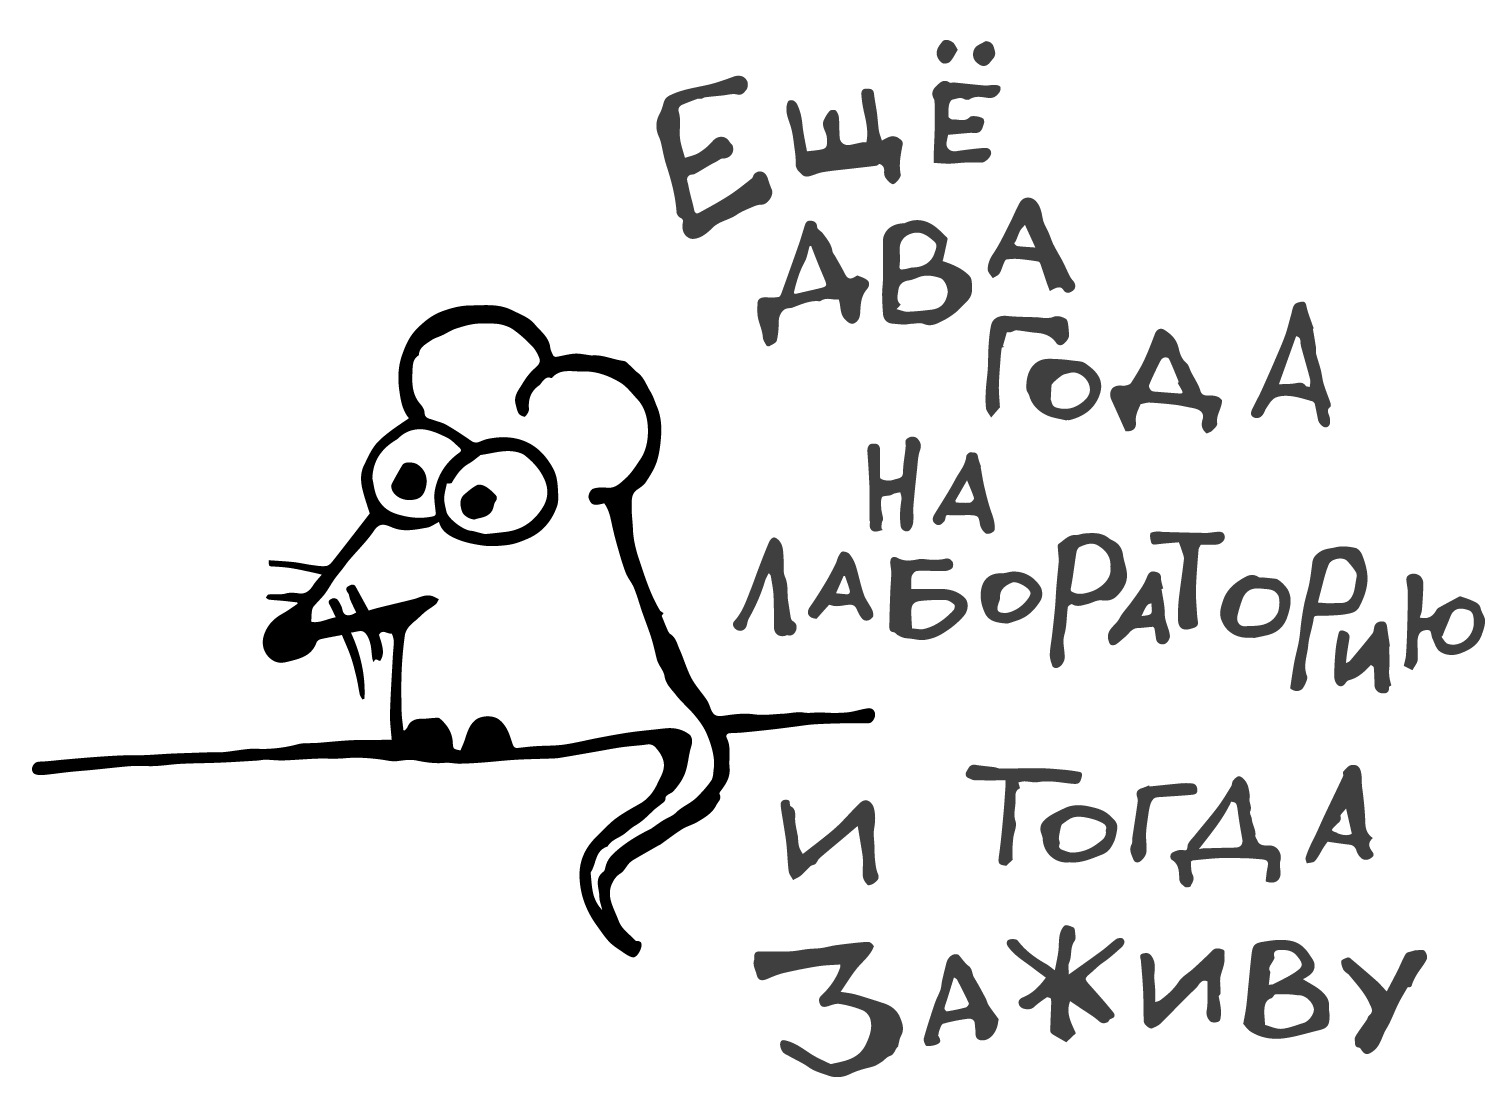 ЕЩЁ
ДВА
ГОДА
НА
ЛАБОРАТОРИЮ
И ТОГДА
ЗАЖИВУ